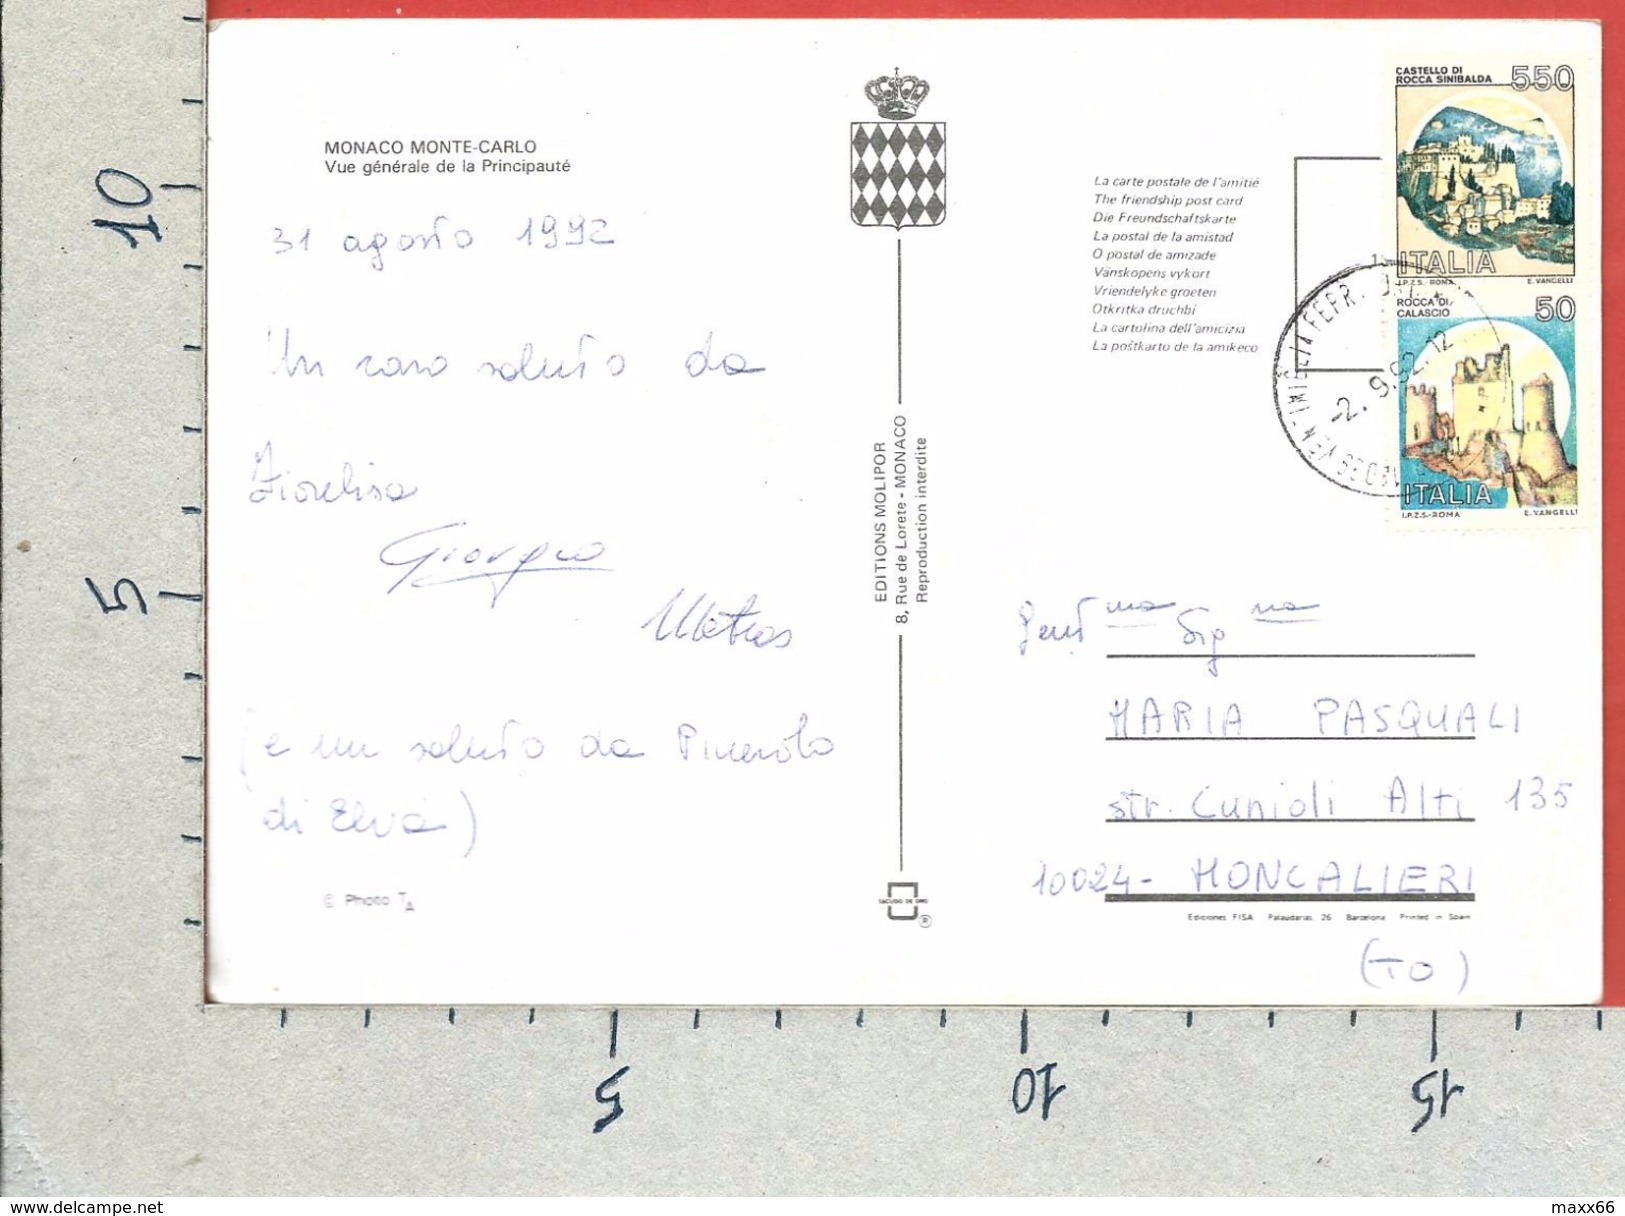 MONACO MONTE-CARLO
Vue générale de la Principauté
31 agosto 1992
Un caro saluto da
Fiorelisa
Giorgio
(e un saluto da Pinerolo
di Elva)
© Photo TA
EDITIONS MOLIPOR
8, Rue de Lorete - MONACO
Reproduction interdite
SACUDO DE ORO
®
La carte postale de l'amitié
The friendship post card
Die Freundschaftskarte
La postal de la amistad
O postal de amizade
Vänskopens vykort
Vriendelyke groeten
Otkritka druchbi
La cartolina dell'amicizia
La poŝtkarto de la amikeco
CASTELLO DI
ROCCA SINIBALDA
550
ITALIA
I.P.Z.S.-ROMA E. VANGELLI
ROCCA DI
CALASCIO
50
ITALIA
I.P.Z.S.-ROMA E. VANGELLI
-2.9.92.12
Gent ma Sig na
MARIA PASQUALI
str. Cunioli Alti 135
10024- MONCALIERI
(TO)
Ediciones FISA Palaudarias, 26 Barcelona Printed in Spain
10
5
5
10
15
maxx66